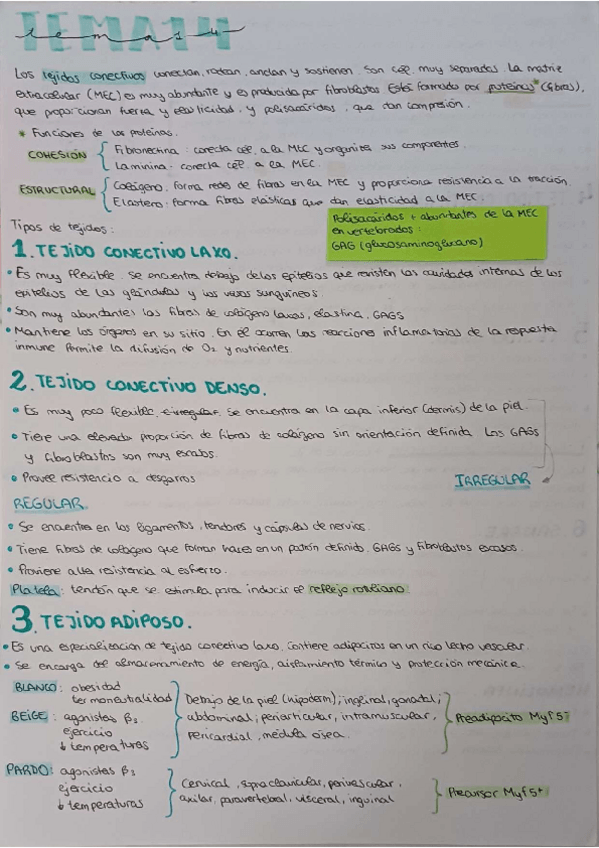 TEMA 14
tema 14
Los tejidos conectivos conectan, rodean, anclan y sostienen. Son cél. muy separadas. La matriz
extracelular (MEC) es muy abundante y es producida por fibroblastos. Está formado por proteínas* (fibras),
que proporcionan fuerza y elasticidad, y polisacáridos, que dan compresión.
* Funciones de las proteínas.
COHESIÓN
Fibronectina: conecta cél. a la MEC y organiza sus componentes.
Laminina: conecta cél. a la MEC.
ESTRUCTURAL
Colágeno: forma redes de fibras en la MEC y proporciona resistencia a la tracción.
Elastina: forma fibras elásticas que dan elasticidad a la MEC.
Polisacáridos + abundantes de la MEC
en vertebrados:
GAG (glucosaminoglucano)
Tipos de tejidos:
1. TEJIDO CONECTIVO LAXO.
• Es muy flexible. Se encuentra debajo de los epitelios que revisten las cavidades internas de los
epitelios de las glándulas y los vasos sanguíneos.
• Son muy abundantes las fibras de colágeno laxas, elastina, GAGS
• Mantiene los órganos en su sitio. En él ocurren las reacciones inflamatorias de la respuesta
inmune. Permite la difusión de O2 y nutrientes.
2. TEJIDO CONECTIVO DENSO.
• Es muy poco flexible. Se encuentra en la capa inferior (dermis) de la piel.
• Tiene una elevada proporción de fibras de colágeno sin orientación definida. Los GAGs
y fibroblastos son muy escasos.
• Provee resistencia a desgarros
IRREGULAR
REGULAR.
• Se encuentra en los ligamentos, tendones y cápsulas de nervios.
• Tiene fibras de colágeno que forman haces en un patrón definido. GAGs y fibroblastos escasos.
• Proviene alta resistencia al esfuerzo.
Platela: tendón que se estimula para inducir el reflejo rotuliano.
3. TEJIDO ADIPOSO.
• Es una especialización de tejido conectivo laxo. Contiene adipocitos en un rico lecho vascular.
• Se encarga del almacenamiento de energía, aislamiento térmico y protección mecánica.
BLANCO: obesidad
termoneutralidad
BEIGE: agonistas β3
ejercicio
↓ temperaturas
Debajo de la piel (hipoderm); inginal, gonadal,
abdominal; periarticular, intramuscular,
pericardial, médula ósea.
Preadipocito Myf5-
PARDO: agonistas β3
ejercicio
↓ temperaturas
Cervical, supraclavicular, perivascular,
axilar, paravertebral, visceral, inguinal
Precursor Myf5+